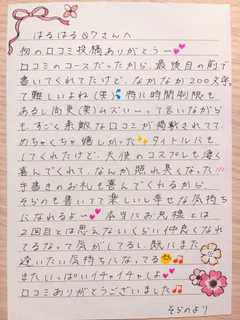 はるはる07さんへ
初の口コミ投稿ありがとう〜💕
口コミのコースだったから、最後目の前で
書いてくれてたけど、なかなか200文字
って難しいよね(笑)💦 特に時間制限も
あるし尚更(笑)ムズいーって言いながら
も、すごく素敵な口コミが掲載されてて
めちゃくちゃ嬉しかった✨タイトルにも
してくれてたけど、天使のコスプレも凄く
喜んでくれて、なんか照れ臭くなった
手書きのお礼も喜んでくれるから、
そらのも書いてて楽しいし幸せな気持ち
になれるよ〜💕 本当にお兄様とは
2回目とは思えないくらい仲良くなれ
てるなって気がしてるし、既にまた
逢いたい気持ちになってる😊🎵
またいっぱいイチャイチャしよ💕
口コミありがとうございました🎵
そらのより